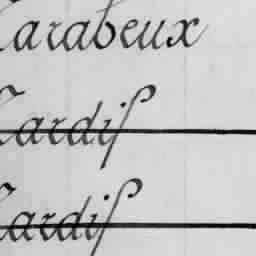 arabeux
ardif
ardif